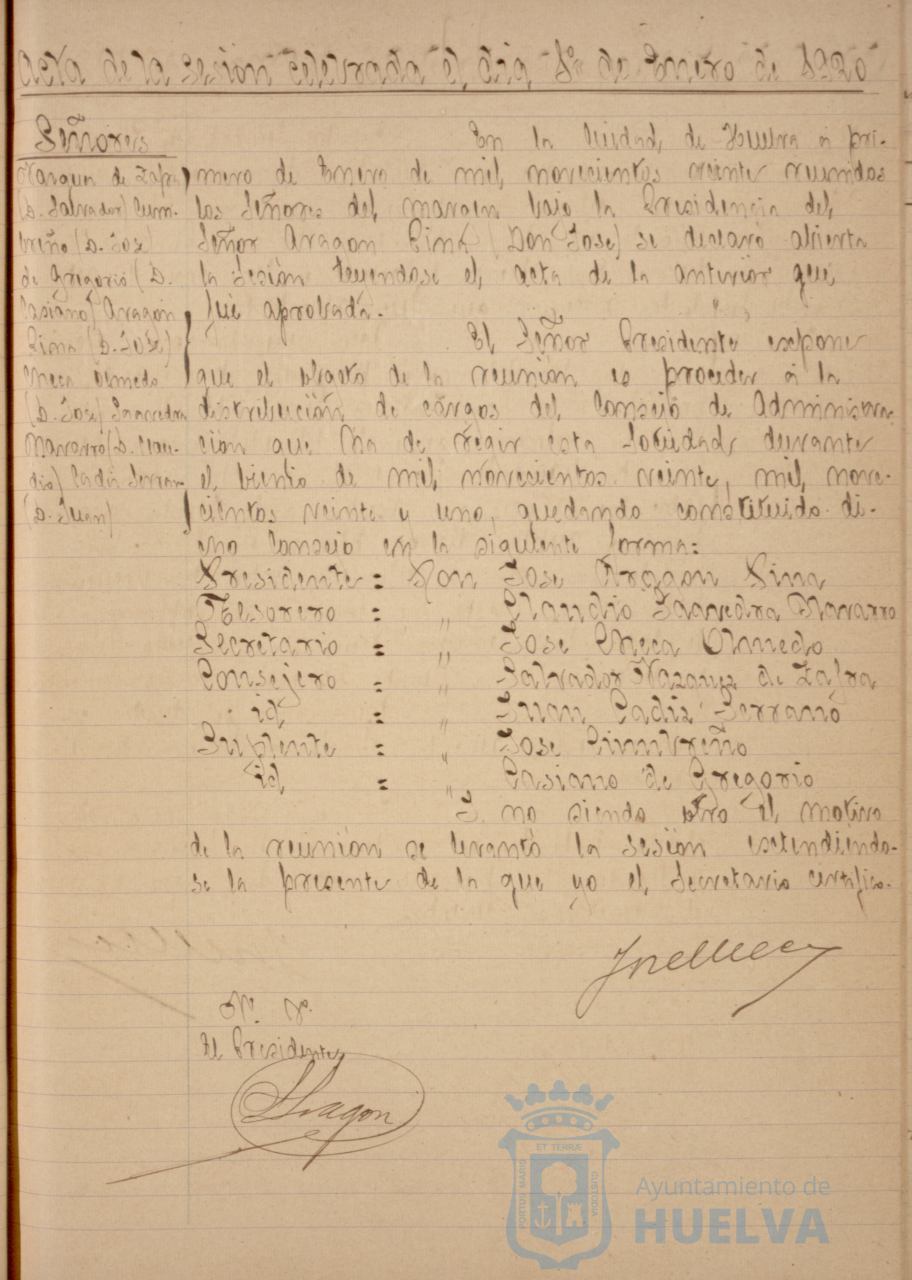 Acta de la sesión celebrada el día 1º de Enero de 1920
Señores
Vazquez de Zafra
(D. Salvador) Cum-
breño (D. José)
de Gregorio (D.
Casiano) Aragón
Pina (D. José)
Checa Olmedo
(D. José) Saavedra
Navarro (D. Clau-
dio) Cadiz Serrano
(D. Juan)
En la Ciudad de Huelva á pri-
mero de Enero de mil novecientos veinte reunidos
los Señores del margen bajo la Presidencia del
Señor Aragon Pina (Don Jose) se declaró abierta
la Sesión leyendose el acta de la anterior que
fué aprobada.
El Señor Presidente expone
que el objeto de la reunión es proceder á la
distribución de cargos del Consejo de Administra-
ción que ha de regir esta Sociedad durante
el bienio de mil novecientos veinte, mil nove-
cientos veinte y uno, quedando constituido di-
cho Consejo en la siguiente forma:
Presidente = Don Jose Aragon Pina
Tesorero = " Claudio Saavedra Navarro
Secretario = " Jose Checa Olmedo
Consejero = " Salvador Vazquez de Zafra
id = " Juan Cadiz Serrano
Suplente = " Jose Cumbreño
id = " Casiano de Gregorio
Y no siendo otro el motivo
de la reunión se levantó la sesión extendiendo-
se la presente de la que yo el Secretario certifico.
Jose Checa
Vº. Bº.
El Presidente
J Aragon
ET TERRÆ
PORTUS MARIS
CUSTODIA
Ayuntamiento de
HUELVA